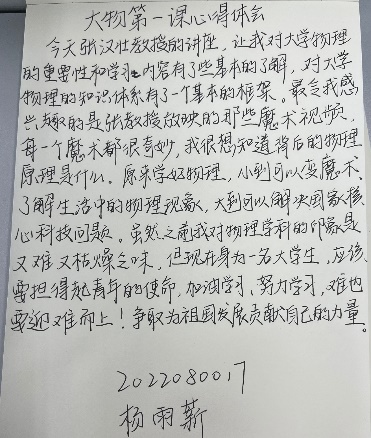 大物第一课心得体会
今天张汉壮教授的讲座，让我对大学物理
的重要性和学习内容有了些基本的了解，对大学
物理的知识体系有了一个基本的框架。最令我感
兴趣的是张教授放映的那些魔术视频，
每一个魔术都很奇妙，我很想知道背后的物理
原理是什么。原来学好物理，小到可以变魔术、
了解生活中的物理现象，大到可以解决国家核
心科技问题。虽然之前我对物理学科的印象是
又难又枯燥乏味，但现在身为一名大学生，应该
要担得起青年的使命，加油学习，努力学习，难也
要迎难而上！争取为祖国发展贡献自己的力量。
2022080017
杨雨薪